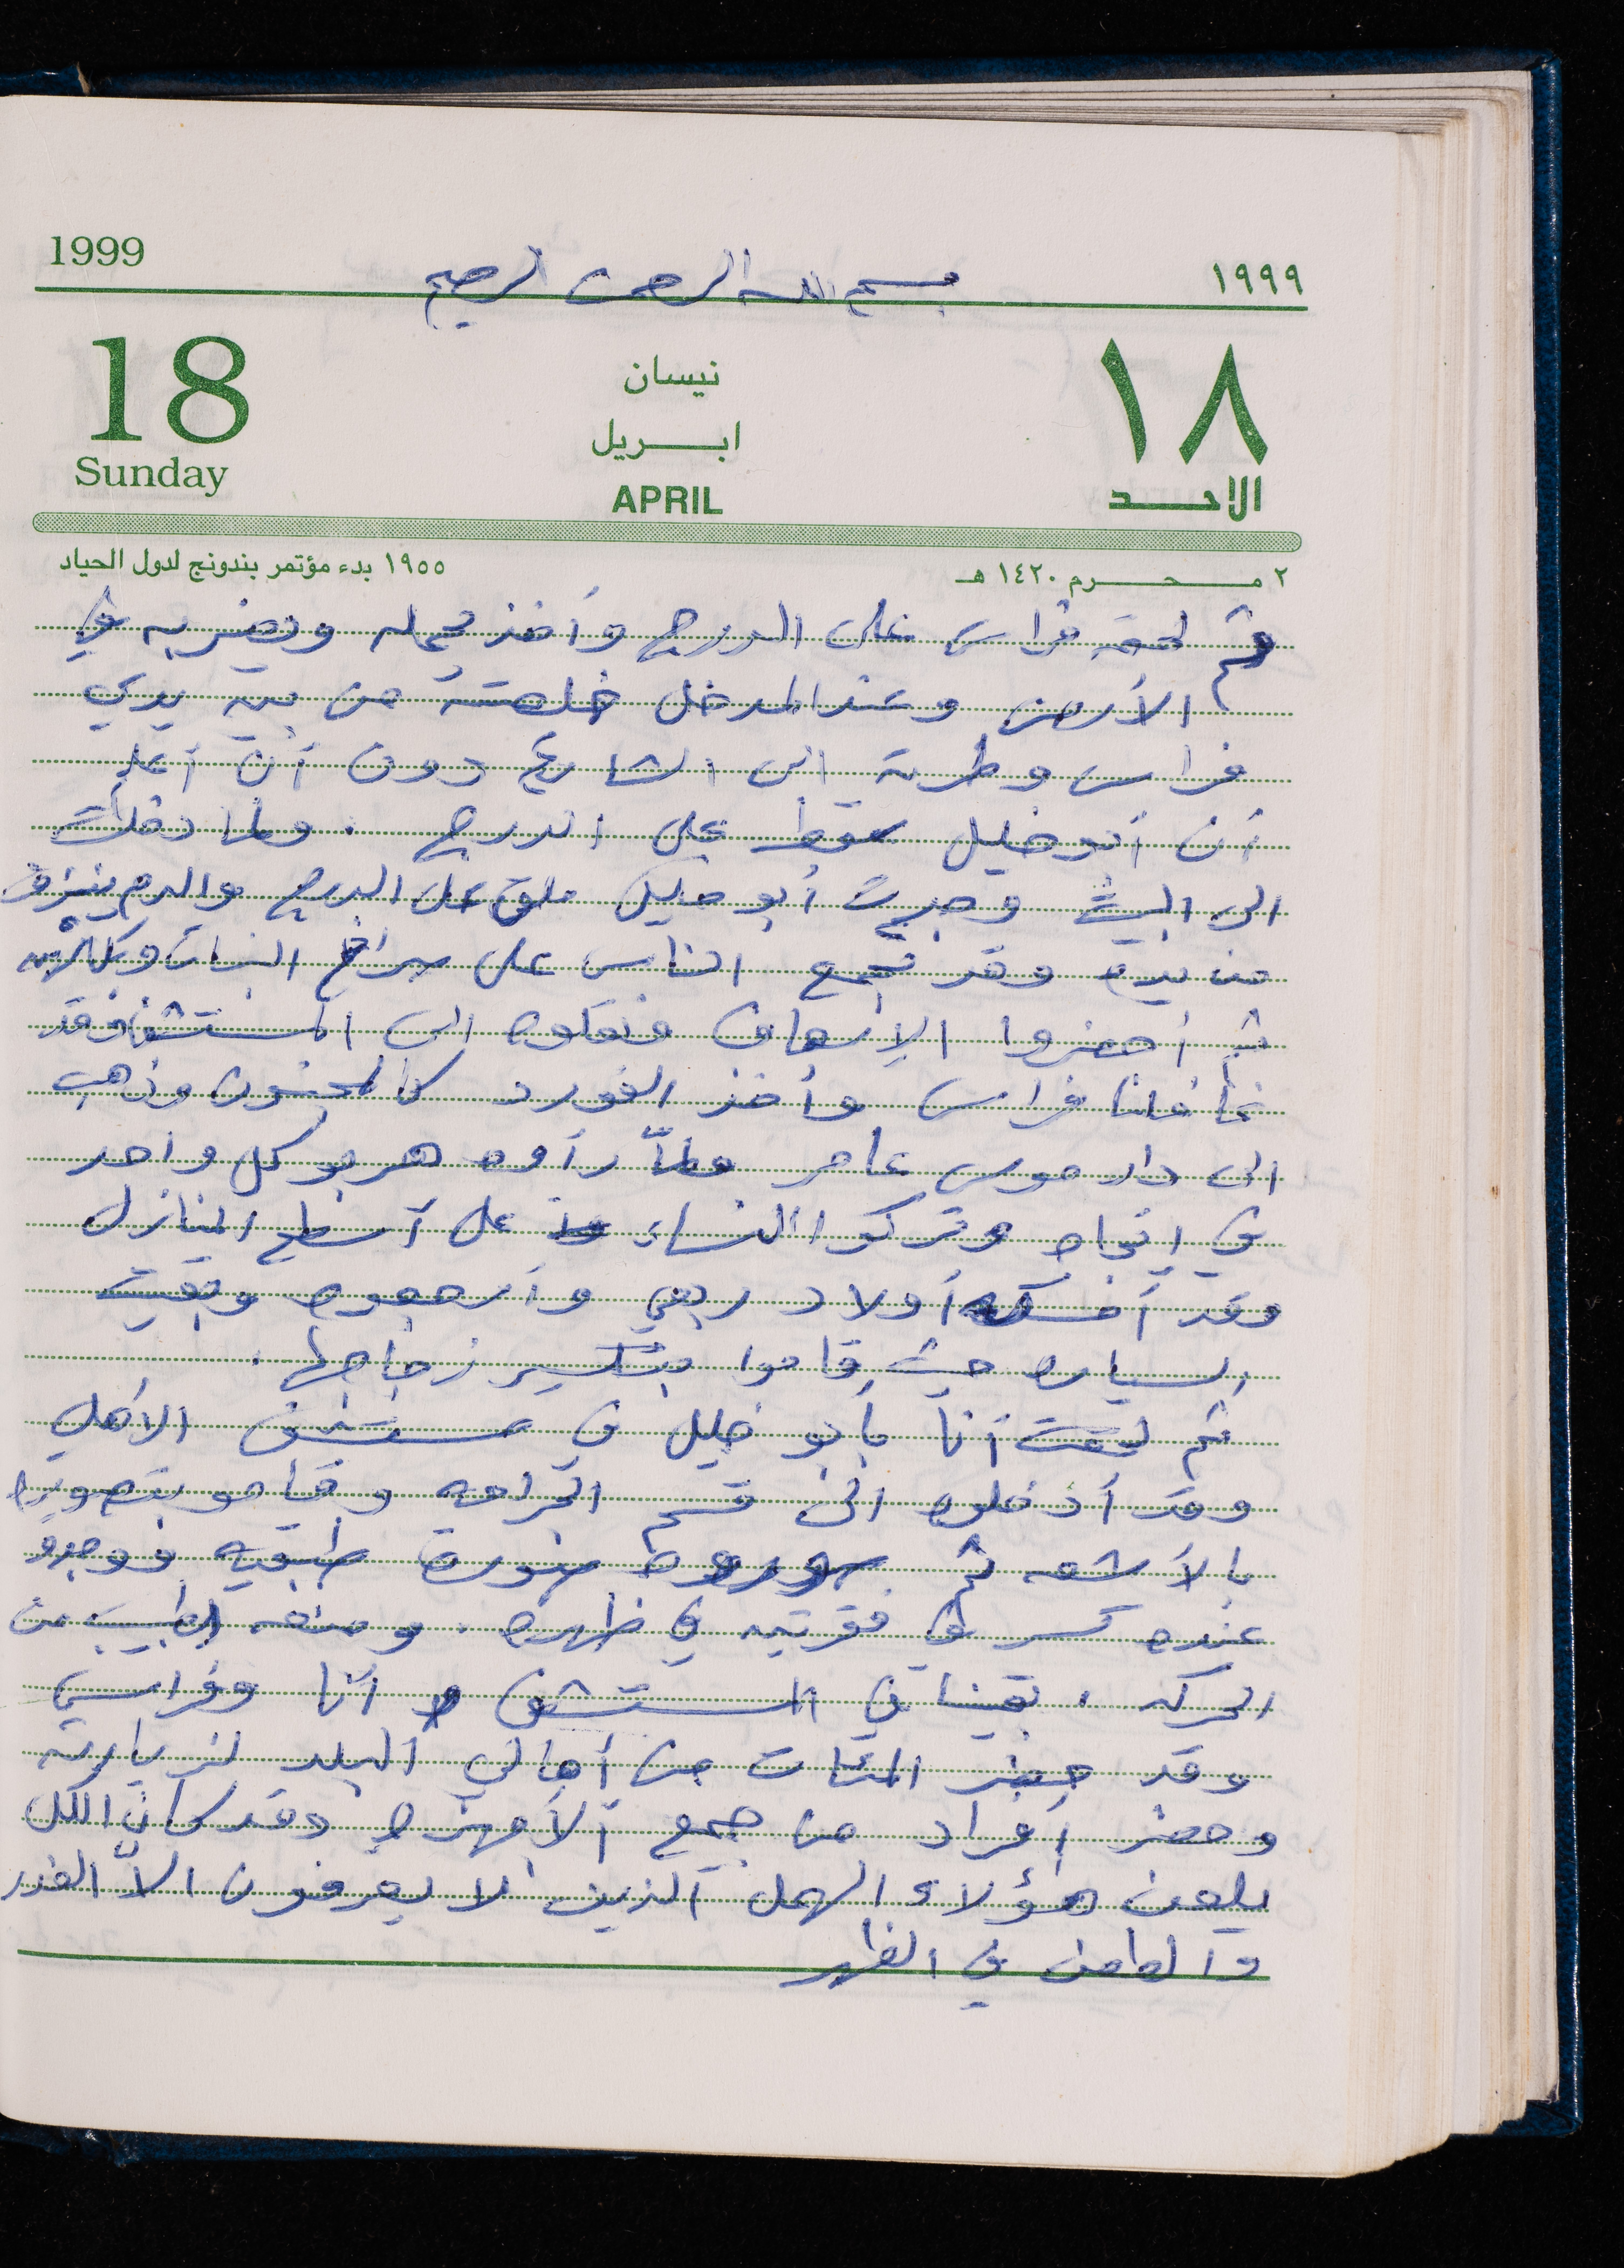 1999
١٩٩٩
بسم الله الرحمن الرحيم
18
Sunday
نيسان
ابريل
APRIL
١٨
الاحد
٢ محرم ١٤٢٠ هـ
١٩٥٥ بدء مؤتمر بندونج لدول الحياد
ثم لحقه فراس على الدرج وأخذ يحمله ويضربه في
الأرض وعند المدخل خلصته من بين يدي
فراس وطردته الى الشارع دون أن أعلم
أن أبو خليل سقط على الدرج . ولما دخلت
الى البيت وجدت أبو خليل ملقى على الدرج والدم ينزف
من يده وقد تجمع الناس على صراخ البنات
ثم أحضروا الإسعاف ونقلوه الى المستشفى وقد
غافلنا فراس وأخذ الفورد كالمجنون وذهب
الى دار موسى عامر ولمّا رأوه هربو كل واحد
في إتجاه وتركوا النساء على أسطح المنازل
وقد أمسكه أولاد ربعي وأرجعوه وبقيت
السياره حيث قاموا بتكسير زجاجها .
ثم لحقت أنا بأبو خليل في مستشفى الأهلي
وقد أدخلوه الى قسم الجراحه وقامو بتصويره
بالأشعه ثم صوروه صوره طبقيه فوجدو
عنده كسر في فقرتين في ظهره . ومنعه الطبيب من
الحركه . بقينا في المستشفى أنا وفراس
وقد حضر المئات من أهالي البلد لزيارته
وحضر أفراد من جميع الأجهزه وقد كان الكل
يلعن هؤلاء الهمل الذين لا يعرفون الاّ الغدر
في الظهر